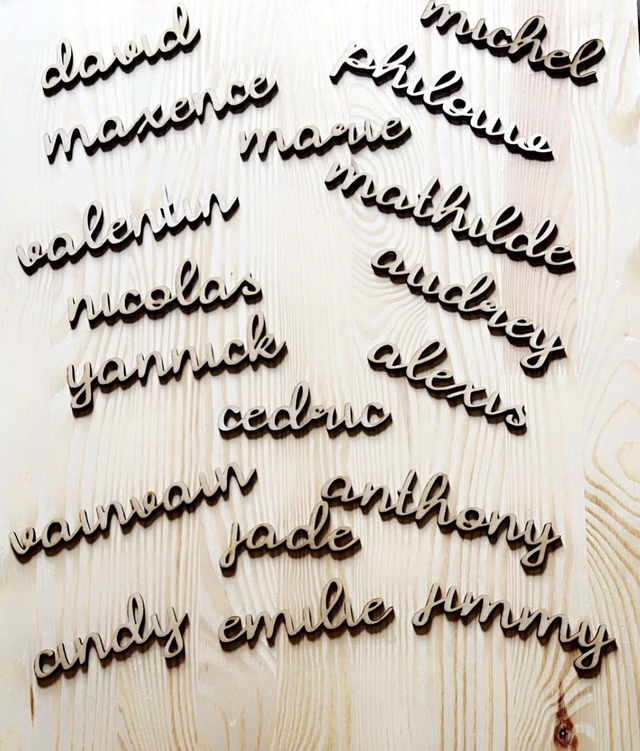 david
michel
maxence
philome
marie
mathilde
valentin
nicolas
audrey
yannick
alexis
cedric
vainvain
anthony
jade
andy
emilie
jimmy